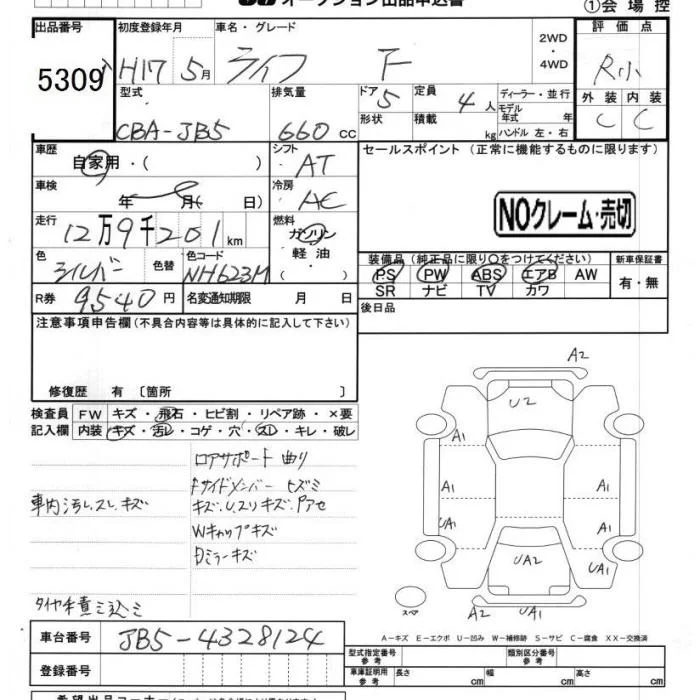 オークション出品申込書
①会場控
出品番号 初度登録年月 車名・グレード 2WD・4WD 評価点
5309 H17 5月 ライフ F R小
型式 排気量 ドア 5 定員 4人 ディーラー・並行 外装 内装
CBA-JB5 660cc 形状 積載 kg モデル年式 年 C C
ハンドル 左・右
車歴 シフト セールスポイント (正常に機能するものに限ります)
自家用・( ) AT
車検 年 月( 日) 冷房 AC
NOクレーム・売切
走行 燃料
12万9千201km ガソリン・軽油・( )
色 シルバー 色替 色コード NH623M
装備品(純正品に限り○をつけてください) 新車保証書
PS PW ABS エアB AW 有・無
SR ナビ TV カワ
R券 9540円 名変通知期限 月 日
後日品
注意事項申告欄(不具合内容等は具体的に記入して下さい)
修復歴 有 〔箇所 〕
検査員記入欄 FW キズ・飛石・ヒビ割・リペア跡・×要
内装 キズ・汚レ・コゲ・穴・スレ・キレ・破レ
ロアサポート曲り
Fサイドメンバー ヒズミ
車内汚レ.スレ.キズ
キズ.U.スリキズ.Pアセ
Wキャップキズ
Dミラーキズ
タイヤ手責ミ込ミ
A2
U2
A1
A1 A1
UA1 A1
UA2 UA1
A2 UA1
スペア
A-キズ E-エクボ U-凹み W-補修跡 S-サビ C-腐食 XX-交換済
車台番号 JB5-4328124
登録番号
型式指定番号 参考 類別区分番号 参考
車庫証明用 参考 長さ cm 幅 cm 高さ cm